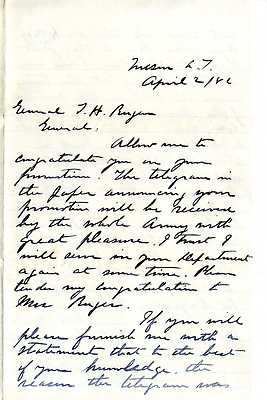 Tucson A.T.
April 2/86
General T. H. Ruger
General.
Allow me to
congratulate you on your
promotion. The telegram in
the paper announcing your
promotion will be received
by the whole Army with
great pleasure. I trust I
will serve in your Department
again at some time. Please
tender my congratulation to
Mrs Ruger.
If you will
please furnish me with a
statement that to the best
of your knowledge. the
reason the telegram was